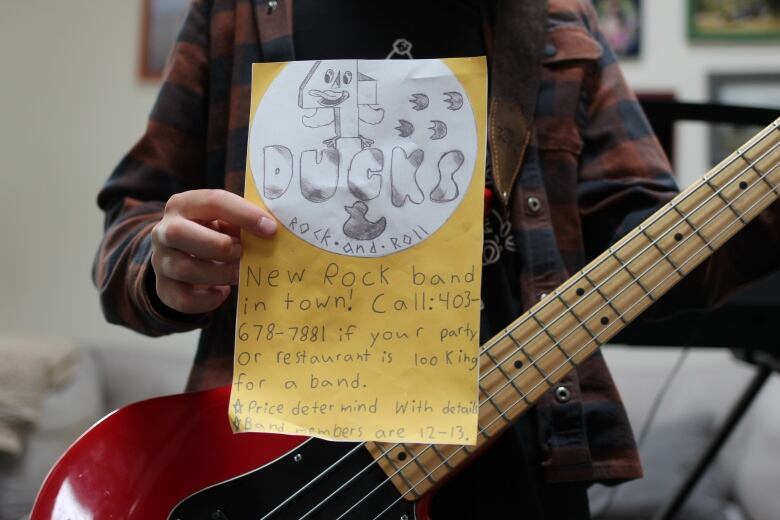 DUCKS
ROCK·AND·ROLL
New Rock band
in town! Call:403-
678-7881 if your party
Or restaurant is looking
for a band.
☆Price determind With details
☆Band members are 12-13.